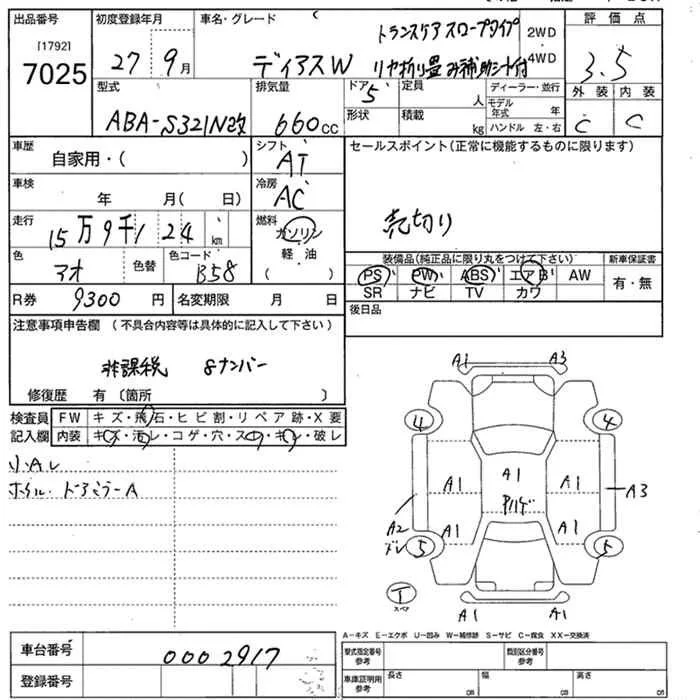 出品番号 初度登録年月 車名・グレード 評価点
[1792] トランスケア スロープタイプ 2WD
7025 27 9月 ディアスW リヤ折り畳み補助シート付 4WD 3.5
型式 排気量 ドア 定員 ディーラー・並行 外装 内装
5 人 モデル年式 年
ABA-S321N改 660cc 形状 積載 kg ハンドル 左・右 C C
車歴 シフト セールスポイント(正常に機能するものに限ります)
自家用・( ) AT
車検 冷房
年 月( 日) AC
走行 燃料 売切り
15万9千124km ガソリン
軽油
色 色替 色コード ( ) 装備品(純正品に限り丸をつけて下さい) 新車保証書
アオ B58 PS PW ABS エアB AW 有・無
R券 9300円 名変期限 月 日 SR ナビ TV カワ
注意事項申告欄 (不具合内容等は具体的に記入して下さい) 後日品
非課税 8ナンバー
修復歴 有〔箇所 〕
検査員 FW キズ・飛石・ヒビ割・リペア跡・X要
記入欄 内装 キズ・汚レ・コゲ・穴・スレ・キレ・破レ
小Aレ
ホイル・ドアミラーA
A1 A3
4 4
A1 A1 A1 A3
A2 A1 A1
5 5
T
スペア
A1 A1
A−キズ E−エクボ U−凹み W−補修跡 S−サビ C−腐食 XX−交換済
車台番号 0002917 型式指定番号 参考 類別区分番号 参考
登録番号 車庫証明用 参考 長さ cm 幅 cm 高さ cm